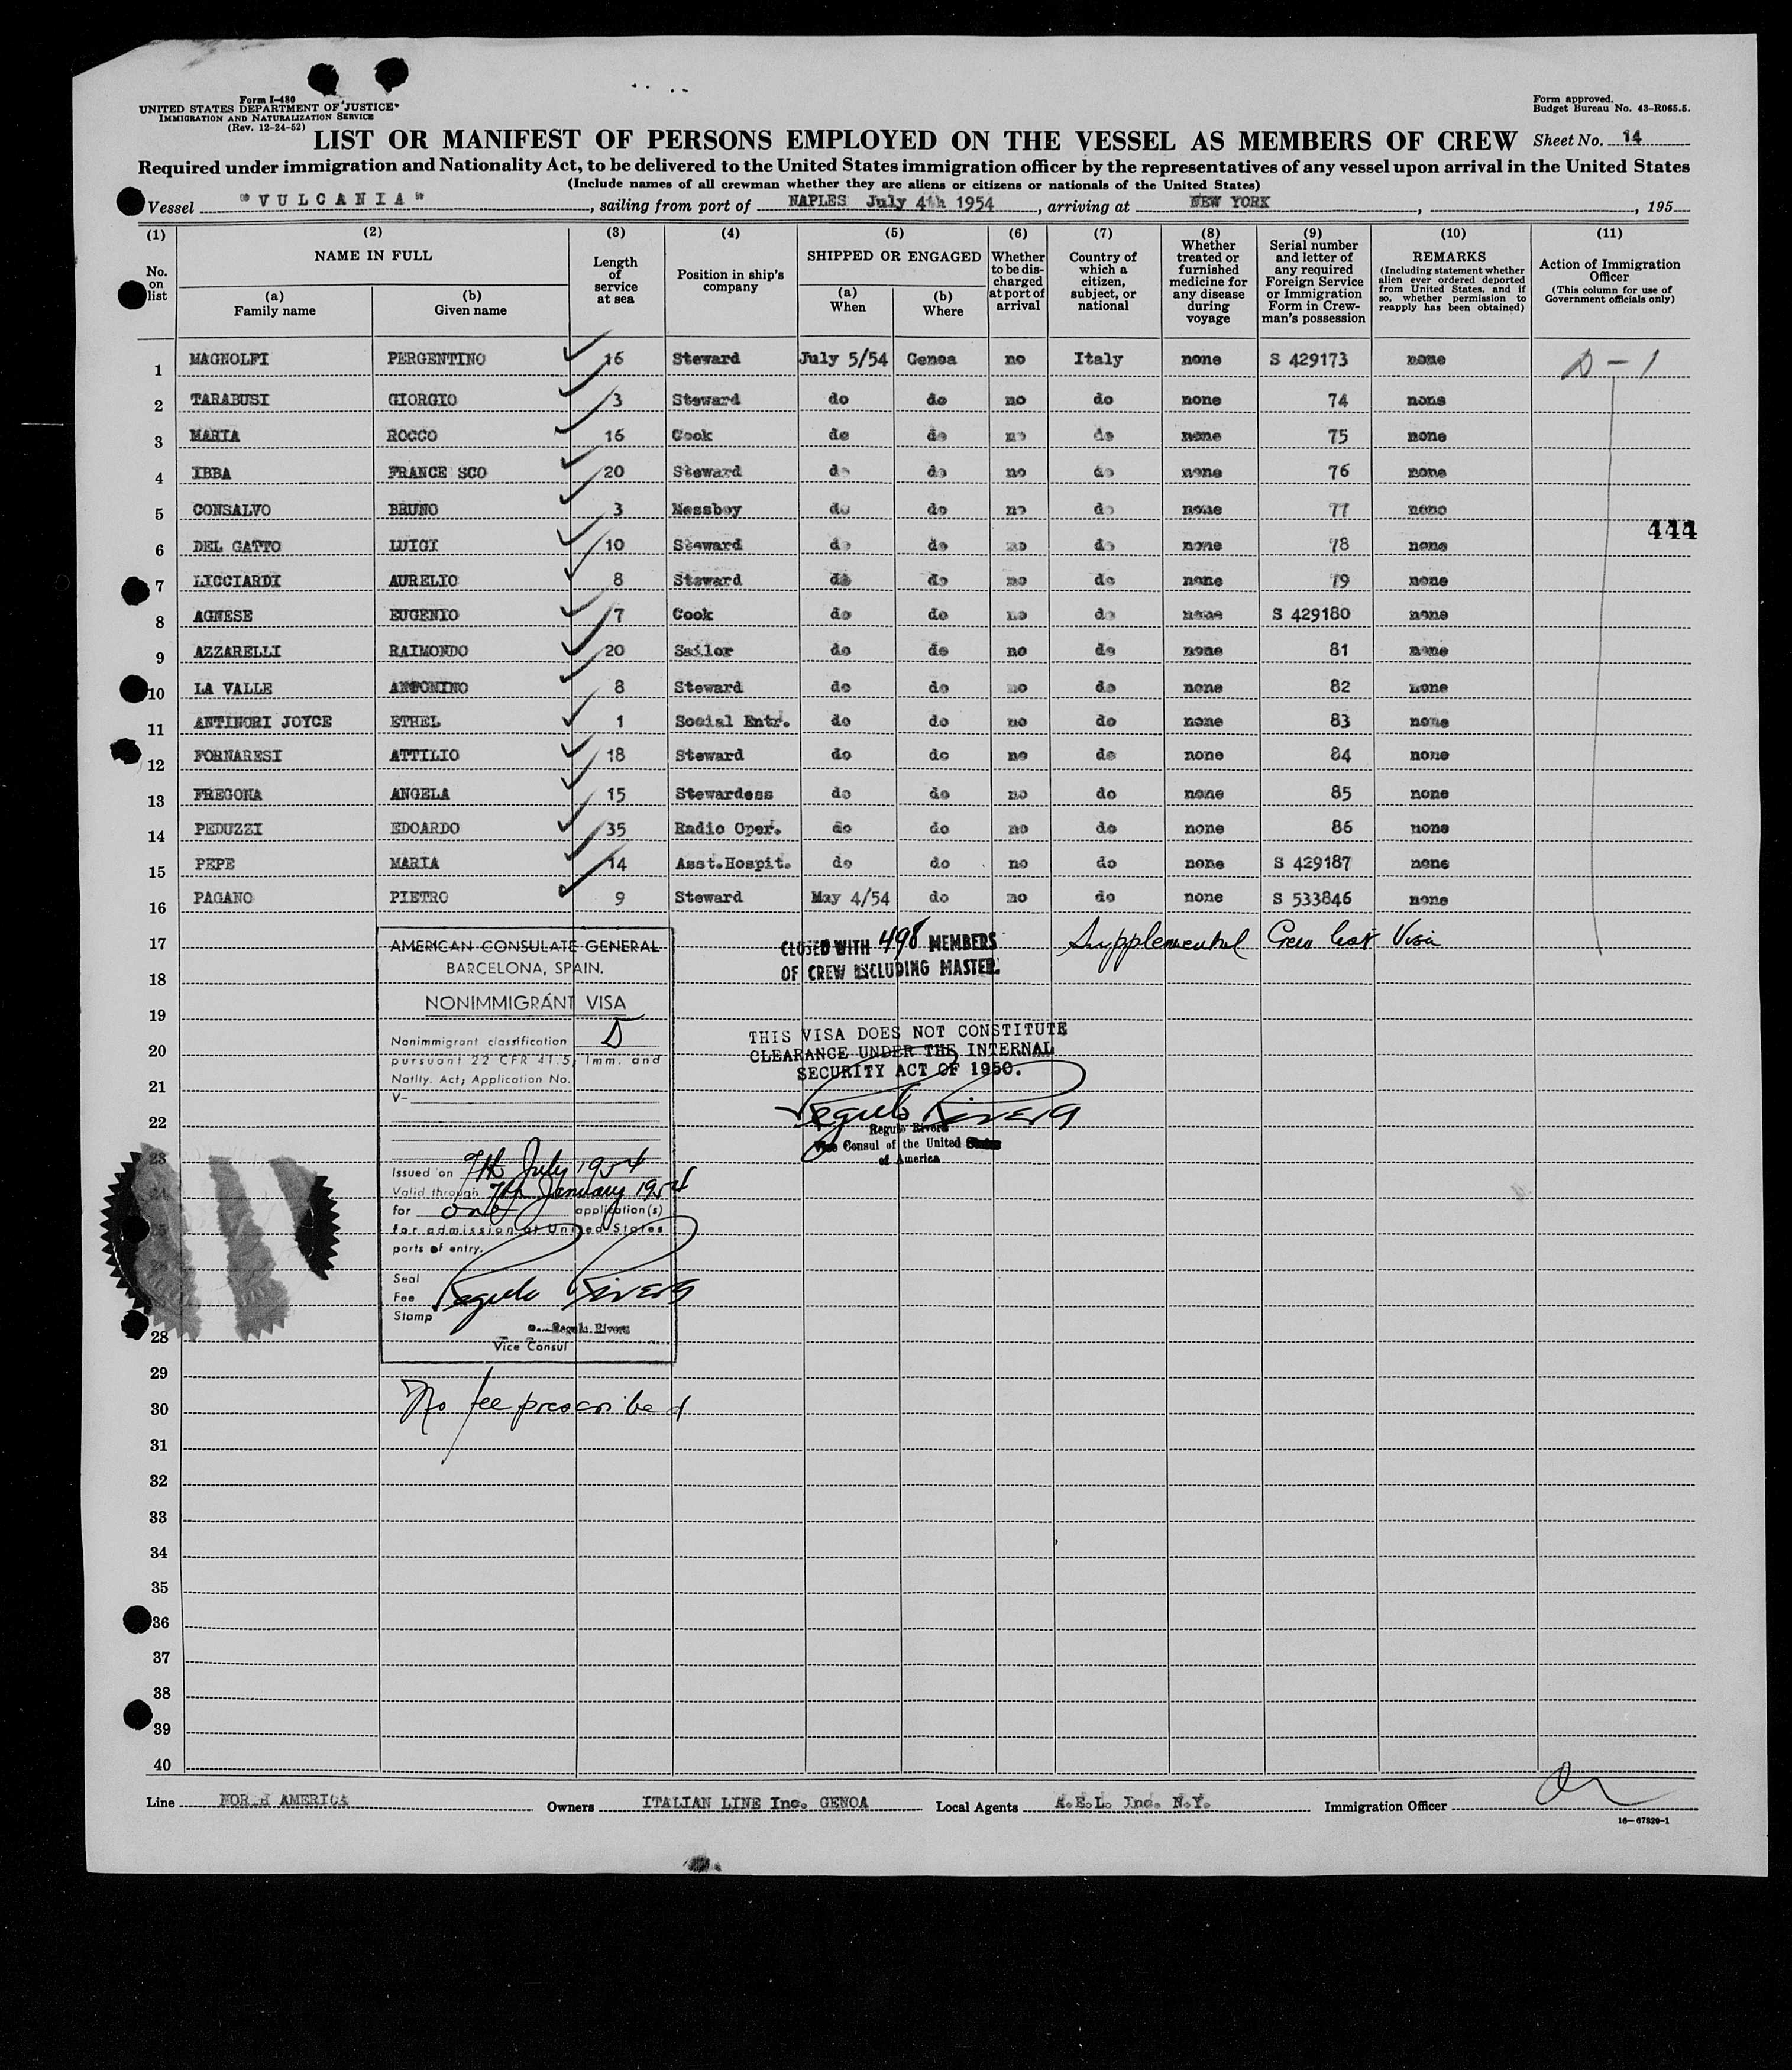 Form I-480
UNITED STATES DEPARTMENT OF JUSTICE
IMMIGRATION AND NATURALIZATION SERVICE
(Rev. 12-24-52)
Form approved.
Budget Bureau No. 43-R065.5.
LIST OR MANIFEST OF PERSONS EMPLOYED ON THE VESSEL AS MEMBERS OF CREW Sheet No. 14
Required under immigration and Nationality Act, to be delivered to the United States immigration officer by the representatives of any vessel upon arrival in the United States
(Include names of all crewman whether they are aliens or citizens or nationals of the United States)
Vessel "VULCANIA", sailing from port of NAPLES July 4th 1954, arriving at NEW YORK, , 195
(1) No. on list
(2) NAME IN FULL
(a) Family name
(b) Given name
(3) Length of service at sea
(4) Position in ship's company
(5) SHIPPED OR ENGAGED
(a) When
(b) Where
(6) Whether to be discharged at port of arrival
(7) Country of which a citizen, subject, or national
(8) Whether treated or furnished medicine for any disease during voyage
(9) Serial number and letter of any required Foreign Service or Immigration Form in Crewman's possession
(10) REMARKS (Including statement whether alien ever ordered deported from United States, and if so, whether permission to reapply has been obtained)
(11) Action of Immigration Officer (This column for use of Government officials only)
1 MAGNOLFI PERGENTINO 16 Steward July 5/54 Genoa no Italy none S 429173 none D-1
2 TARABUSI GIORGIO 3 Steward do do no do none 74 none
3 MARIA ROCCO 16 Cook do do no do none 75 none
4 IBBA FRANCE SCO 20 Steward do do no do none 76 none
5 CONSALVO BRUNO 3 Messboy do do no do none 77 none
444
6 DEL GATTO LUIGI 10 Steward do do no do none 78 none
7 LICCIARDI AURELIO 8 Steward do do no do none 79 none
8 AGNESE EUGENIO 7 Cook do do no do none S 429180 none
9 AZZARELLI RAIMONDO 20 Sailor do do no do none 81 none
10 LA VALLE ANTONINO 8 Steward do do no do none 82 none
11 ANTINORI JOYCE ETHEL 1 Social Entr. do do no do none 83 none
12 FORNARESI ATTILIO 18 Steward do do no do none 84 none
13 FREGONA ANGELA 15 Stewardess do do no do none 85 none
14 PEDUZZI EDOARDO 35 Radio Oper. do do no do none 86 none
15 PEPE MARIA 14 Asst.Hospit. do do no do none S 429187 none
16 PAGANO PIETRO 9 Steward May 4/54 do no do none S 533846 none
17
18
19
20
21
22
23
24
25
26
28
29
30
31
32
33
34
35
36
37
38
39
40
AMERICAN CONSULATE GENERAL
BARCELONA, SPAIN.
NONIMMIGRANT VISA
Nonimmigrant classification D
pursuant 22 CFR 41.5; Imm. and
Natlty. Act; Application No.
V-
Issued on 7th July 1954
Valid through 7th January 1954
for one application(s)
for admission at United States
ports of entry.
Seal
Fee
Stamp
Regulo Rivera
Regulo Rivera
Vice Consul
No fee prescribed
CLOSED WITH 498 MEMBERS
OF CREW INCLUDING MASTER.
Supplemental Crew list Visa
THIS VISA DOES NOT CONSTITUTE
CLEARANCE UNDER THE INTERNAL
SECURITY ACT OF 1950.
Regulo Rivera
Regulo Rivera
Vice Consul of the United States
of America
Line NORTH AMERICA Owners ITALIAN LINE Inc. GENOA Local Agents A.E.L. Inc. N.Y. Immigration Officer
16-67829-1